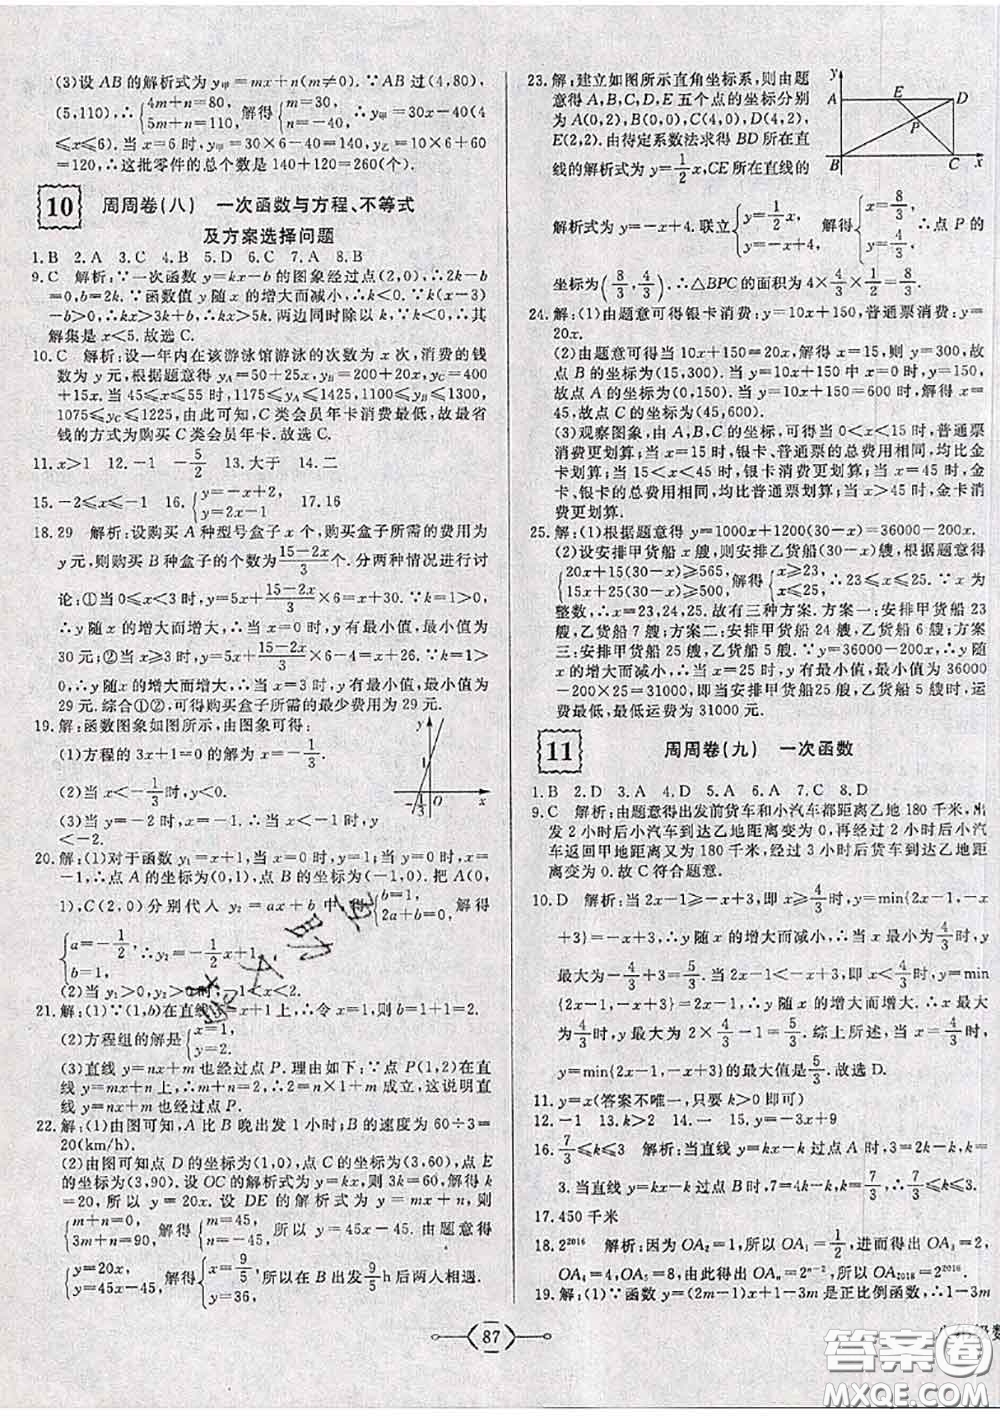 (3)设 AB 的解析式为 y甲=mx+n(m≠0).∵AB 过(4,80),
(5,110),∴{4m+n=80, 5m+n=110, 解得{m=30, n=-40, ∴y甲=30x-40(4
≤x≤6).当 x=6 时,y甲=30×6-40=140,y乙=10×6+60
=120,∴这批零件的总个数是 140+120=260(个).
10 周周卷(八) 一次函数与方程、不等式
及方案选择问题
1.B 2.A 3.C 4.B 5.D 6.C 7.A 8.B
9.C 解析:∵一次函数 y=kx-b 的图象经过点(2,0),∴2k-b
=0,b=2k.∵函数值 y 随 x 的增大而减小,∴k<0.∵k(x-3)
-b>0,∴kx>3k+b,∴kx>5k.两边同时除以 k,∵k<0,∴其
解集是 x<5.故选 C.
10.C 解析:设一年内在该游泳馆游泳的次数为 x 次,消费的钱
数为 y 元,根据题意得 yA=50+25x,yB=200+20x,yC=400
+15x.当 45≤x≤55 时,1175≤yA≤1425,1100≤yB≤1300,
1075≤yC≤1225,由此可知,C 类会员年卡消费最低,故最省
钱的方式为购买 C 类会员年卡.故选 C.
11.x>1 12.-1 -5/2 13.大于 14.二
15.-2≤x≤-1 16.{y=-x+2, y=2x-1 17.16
18.29 解析:设购买 A 种型号盒子 x 个,购买盒子所需的费用为
y 元,则购买 B 种盒子的个数为(15-2x)/3个.分两种情况进行讨
论:①当 0≤x<3 时,y=5x+(15-2x)/3×6=x+30.∵k=1>0,
∴y 随 x 的增大而增大,∴当 x=0 时,y 有最小值,最小值为
30 元;②当 x≥3 时,y=5x+(15-2x)/3×6-4=x+26.∵k=1>
0,∴y 随 x 的增大而增大,∴当 x=3 时,y 有最小值,最小值为
29 元.综合①②,可得购买盒子所需的最少费用为 29 元.
19.解:函数图象如图所示,由图象可得:
(1)方程的 3x+1=0 的解为 x=-1/3.
(2)当 y<0 时,x<-1/3.
(3)当 y<-5 时,x<-2.
y 1 -1/3 O x
20.解:(1)对于函数 y1=x+1,当 x=0 时,y=1;当 y=0 时,x=
-1,∴A 点的坐标为(0,1),B 点的坐标为(-1,0).把 A(0,
1),C(2,0)分别代人 y2=ax+b 中得{b=1, 2a+b=0, 解得
{a=-1/2, b=1, ∴y2=-1/2x+1.
(2)当 y1>0,y2>0 时,-1<x<2.
21.解:(1)∵(1,b)在直线 y=x+1 上,∴令 x=1,则 b=1+1=2.
(2)方程组的解是{x=1, y=2.
(3)直线 y=nx+m 也经过点 P.理由如下:∵点 P(1,2)在直
线 y=mx+n 上,∴m+n=2,∴2=n×1+m 成立,这说明直
线 y=nx+m 也经过点 P.
22.解:(1)由图可知,A 比 B 晚出发 1 小时;B 的速度为 60÷3=
20(km/h).
(2)由图可知点 D 的坐标为(1,0),点 C 的坐标为(3,60),点 E
的坐标为(3,90).设 OC 的解析式为 y=kx,则 3k=60,解得 k
=20,所以 y=20x.设 DE 的解析式为 y=mx+n,则
{m+n=0, 3m+n=90, 解得{m=45, n=-45, 所以 y=45x-45.由题意得
{y=20x, y=45x-45, 解得{x=9/5, y=36, 所以在 B 出发9/5h 后两人相遇.
23.解:建立如图所示直角坐标系,则由题
意得 A,B,C,D,E 五个点的坐标分别
为 A(0,2),B(0,0),C(4,0),D(4,2),
E(2,2).由待定系数法求得 BD 所在直
线的解析式为 y=1/2x,CE所在直线的
解析式为 y=-x+4.联立{y=1/2x, y=-x+4, 解得{x=8/3, y=4/3, ∴点 P 的
坐标为(8/3,4/3),∴△BPC 的面积为 4×4/3×1/2=8/3.
y A E D P B C x
24.解:(1)由题意可得银卡消费:y=10x+150,普通票消费:y=
20x.
(2)由题意可得当 10x+150=20x,解得 x=15,则 y=300,故
点 B 的坐标为(15,300).当 y=10x+150 中 x=0 时,y=150,
故点 A 的坐标为(0,150).当 y=10x+150=600,解得 x=45,
故点 C 的坐标为(45,600).
(3)观察图象,由 A,B,C 的坐标,可得当 0<x<15 时,普通票
消费更划算;当 x=15 时,银卡、普通票的总费用相同,均比金
卡划算;当 15<x<45 时,银卡消费更划算;当 x=45 时,金
卡、银卡的总费用相同,均比普通票划算;当 x>45 时,金卡消
费更划算.
25.解:(1)根据题意得 y=1000x+1200(30-x)=36000-200x.
(2)设安排甲货船 x 艘,则安排乙货船(30-x)艘,根据题意得
{20x+15(30-x)≥565, 15x+25(30-x)≥500, 解得{x≥23, x≤25, ∴23≤x≤25.∵x 为
整数,∴x=23,24,25.故有三种方案.方案一:安排甲货船
23 艘,乙货船 7 艘;方案二:安排甲货船 24 艘,乙货船 6 艘;方案
三:安排甲货船 25 艘,乙货船 5 艘.∵y=36000-200x,∴y 随 x
的增大而减小,∴当 x=25 时,y 有最小值,最小值为 36000
-200×25=31000,即当安排甲货船 25 艘,乙货船 5 艘时,运
费最低,最低运费为 31000 元.
11 周周卷(九) 一次函数
1.B 2.D 3.A 4.D 5.A 6.A 7.C 8.D
9.C 解析:由题意得出发前货车和小汽车都距离乙地 180 千米,出
发 2 小时后小汽车到达乙地距离变为 0,再经过 2 小时小汽
车返回甲地距离又为 180 千米,经过 3 小时后货车到达乙地距离
变为 0.故 C 符合题意.
10.D 解析:当 2x-1≥-x+3 时,x≥4/3时,y=min{2x-1,-x
+3}=-x+3,∴y 随 x 的增大而减小,∴当 x 最小为4/3时,y最大
为-4/3+3=5/3.当 2x-1<-x+3 时,x<4/3时,y=min
{2x-1,-x+3}=2x-1,∴y 随 x 的增大而增大.∴x 最大
为4/3时,y 最大为 2×4/3-1=5/3.综上所述,当 x=4/3时,
y=min{2x-1,-x+3}的最大值是5/3.故选 D.
11.y=x(答案不唯一,只要 k>0 即可)
12.-1 13.k>2 14.-1 15.y=-3x+9
16.7/3≤k≤3 解析:当直线 y=kx-k 过点 A 时,3=2k-k,k=
3.当直线 y=kx-k 过点 B 时,7=4k-k,k=7/3,∴7/3≤k≤3.
17.450 千米
18.2^2016 解析:因为 OA2=1,所以 OA1=1/2,进而得出 OA3=2,
OA4=4,OA5=8,由此得出 OAn=2^(n-2),所以 OA2018=2^2016.
19.解:(1)∵函数 y=(2m-1)x+1-3m 是正比例函数,∴1-3m
87
答案圈
MXQE.COM